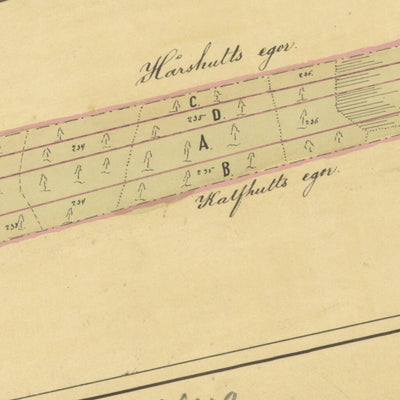 Hårshults egor.
236.
C.
D.
235
A
236
234
235
B.
234
233
Kalfhults egor.